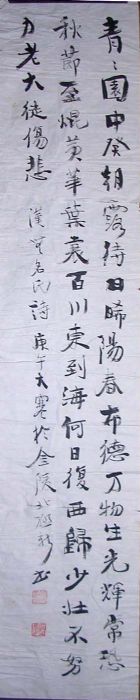 青〻園中葵朝露待日晞陽春布德万物生光輝常恐
秋節至焜黄華葉衰百川東到海何日復西歸少壮不努
力老大徒傷悲 漢無名氏詩 庚午大寒於金陵